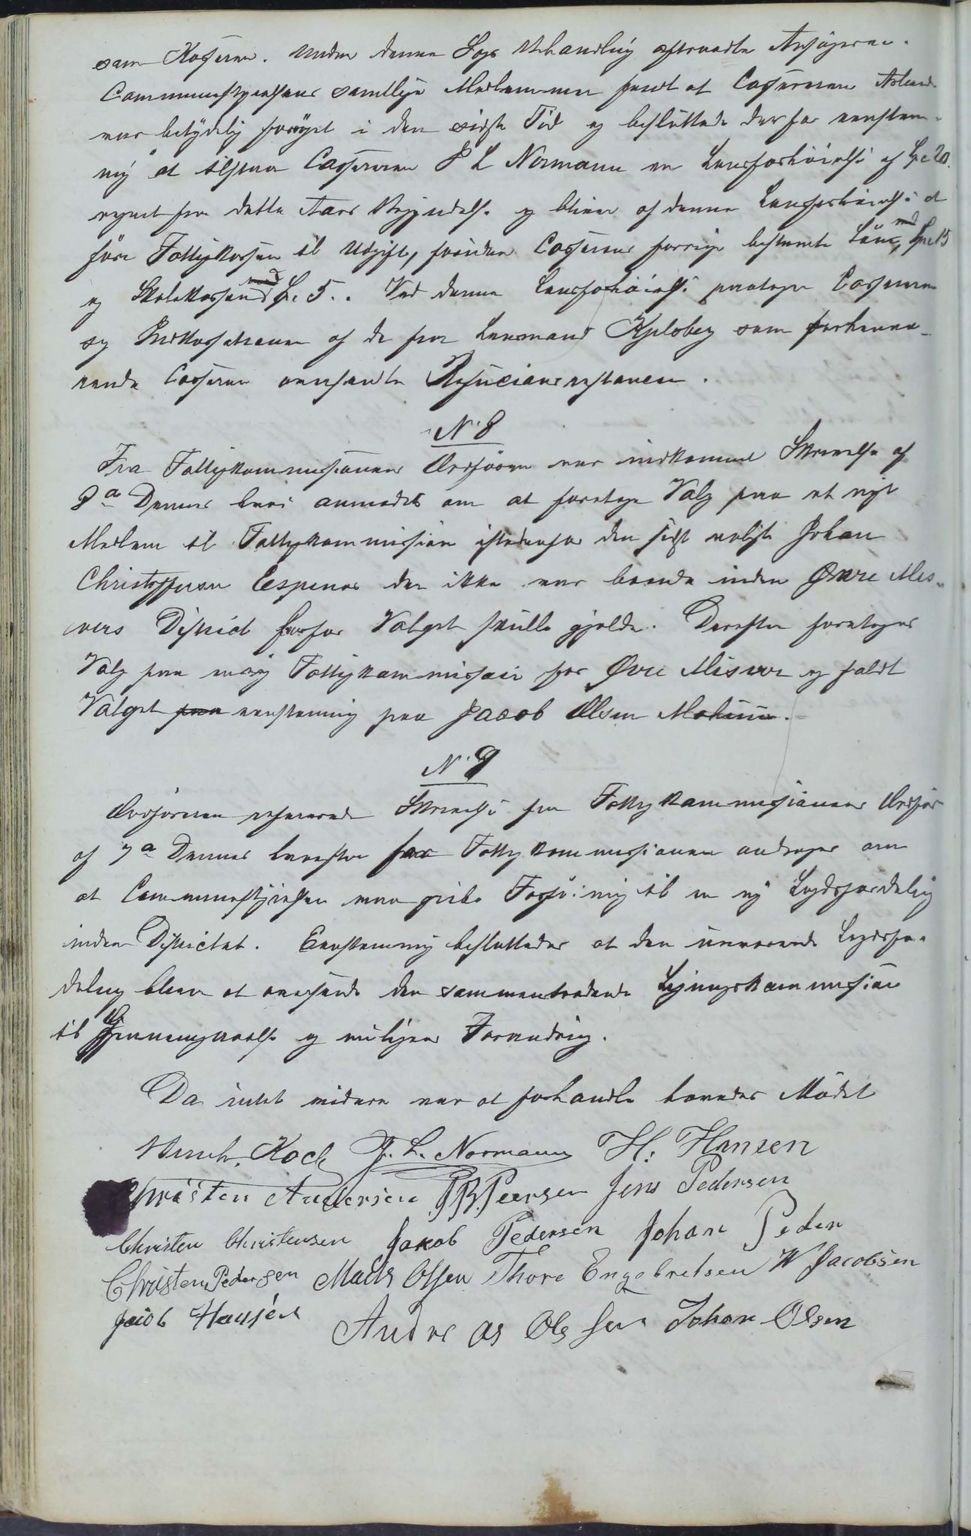 som Kasserer. Under denne Sags Behandling aftraadte Ansøgeren.
Communestyrelsens samtlige Medlemmer fandt at Casserernes Arbeide
var betydelig forøget i den sidste Tid og besluttede derfor eenstem-
mig at tilstaa Casserer P L Normann en Lønsforhøielse af Spd 20.
regnet fra dette Aars Begyndelse og bliver af denne Lønsforhøielse at
føre Fattigkassen til Udgift, foruden Casserens forrige bestemte Løn, med Spd 15
og Skolekassen med Spd. 5.. Ved denne Lønsforhøielse paatager Casseren
sig Indkassationen af de fra Lensmand Kjelsberg som forhenvæ-
rende Casserer oversendte Restancer.
N. 8
Fra Fattigkommissionens Ordfører var indkommet Skrivelse af
9de Dennes hvori anmodes om at foretage Valg paa et nyt
Medlem til Fattigkommission istedenfor den sidst valgte Johan
Christoffersen Espenes der ikke var boende inden Øvre Mis-
vers District hvorfor Valget skulle gjelde. Derefter foretoges
Valg paa en ny Fattigkommissair for Øvre Misvær og faldt
Valget eenstemmig paa Jacob Olsen
N. 9
Ordføreren refererede Skrivelse fra Fattigkommissionens Ordfør
af 7de Dennes hvorefter Fattigkommissionen andrager om
at Communestyrelsen maa give Forføining til en ny Lægdsfordeling
inden Districtet. Eenstemmig besluttedes at den nuværende Lægdsfor-
deling bliver at oversende den sammentrædende Ligningskommission
til Gjennemgaaelse og mulige Forandring.
Da intet videre var at forhandle hævedes Mødet
Koch P. L. Normann H. Hansen
Christen Andersen Peersen Jens Pedersen
Christen Christensen Jakob Pedersen Johan Peder
Christen Pedersen Mads Olsen Thore Engebretsen W Jacobsen
Jacob Hansen Andreas Olssen Johan Olsen